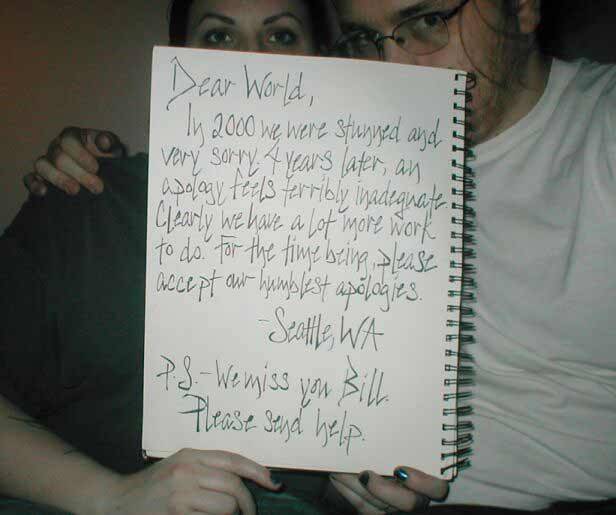 Dear World,
In 2000 we were stunned and
very sorry. 4 years later, an
apology feels terribly inadequate.
Clearly we have a lot more work
to do. For the time being, please
accept our humblest apologies.
-Seattle, WA
P.S.-We miss you Bill.
Please send help.